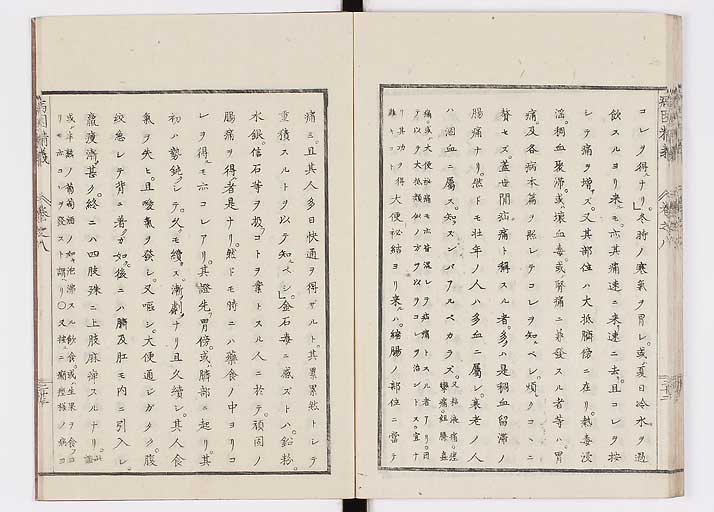 コレヲ得ルナリ。冬時ノ寒氣ヲ冒シ。或ハ夏日冷水ヲ過
飲スルヨリ来ルモ。亦其痛速ニ来リ。速ニ去ル。且コレヲ按
シテ痛ヲ増ス。又其部位ハ大抵臍傍ニ在リ。熱毒浸
淫。稠血聚滞。或ハ壊血毒。或ハ腎痛ニ兼發スル者等ハ。胃
痛及各病本篇ヲ照シテコレヲ知ベシ。煩シクコヽニ
贅セズ。蓋世間疝痛ト稱スル者。多クハ是稠血留滞ノ
腸痛ナリ。然ドモ壮年ノ人ハ多血ニ屬シ。衰老ノ人
ハ涸血ニ屬ス。知ズンバアルベカラズ。
痛。或ハ大便秘痛モ亦皆混シテ疝痛トスル者アリ。因
テ以テ大抵類似ノ方ヲ以テコレヲ治ントス。宜ナリ
其功ヲ得
難キコト。
大便秘結ヨリ来ルハ。結腸ノ部位ニ當テ
痛ミ。且其人多日快通ヲ得ザルト。其累累然トシテ
重積スルトヲ以テ知ベシ。金石毒ニ感ズトハ。鉛粉。
水銀。信石等ヲ扱フコトヲ業トスル人ニ於テ。頑固ノ
腸痛ヲ得ル者是ナリ。然ドモ時ニハ藥食ノ中ヨリコ
レヲ得ルモ亦コレアリ。其證先ヅ胃傍。或ハ臍部ニ起リ。其
初ハ勢鈍クシテ。久シク續ス。漸ク劇ナリ。且久續シ。其人食
氣ヲ失ヒ。且噯氣ヲ發シ。又嘔シ。大便通シガタク。腹
絞急シテ背ニ着ガ如シ。後ニハ臍及肛モ内ニ引入シ。
羸痩漸ク甚ク。終ニハ四肢殊ニ上肢麻痺スルナリ。
或ハ半熟ノ葡萄酒ノ如キ泡沸スル飲食。或ハ生果ヲ食フヨ
リモ亦コレヲ發スト謂リ。